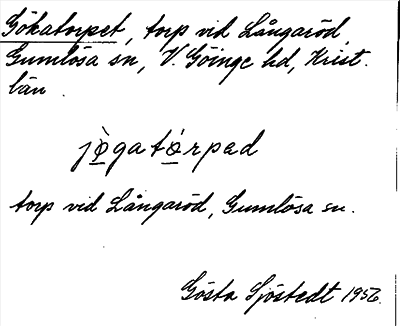 Gökatorpet, torp vid Långaröd,
Gumlösa sn, V. Göinge hd, Krist.
län.
jø̀gatɔ́rpəd
torp vid Långaröd, Gumlösa sn.
Gösta Sjöstedt 1956.